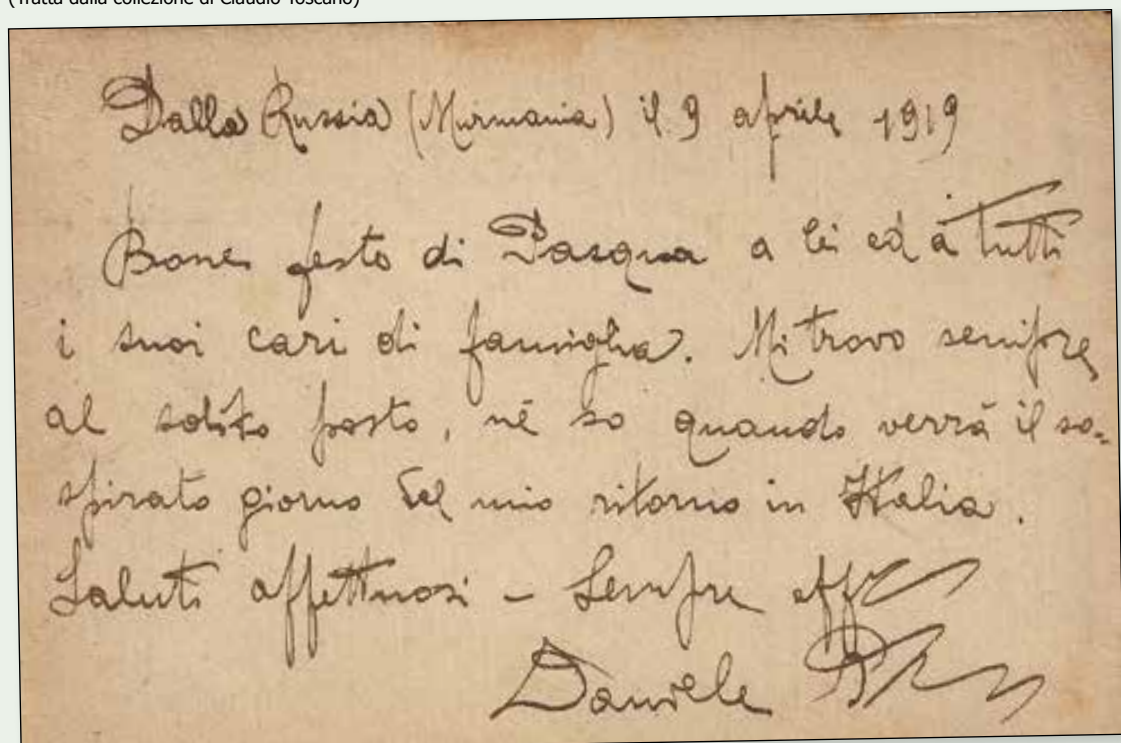 (Tratta dalla collezione di Claudio Toscano)
Dalla Russia (Murmania) il 9 aprile 1919
Bone feste di Pasqua a lei ed a tutti
i suoi cari di famiglia. Mi trovo sempre
al solito posto, nè so quando verrà il so=
spirato giorno del mio ritorno in Italia.
Saluti affettuosi - Sempre aff
Daniele